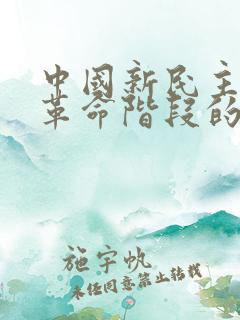 中國新民主
革命階段的
施宇帆
未经同意禁止转载